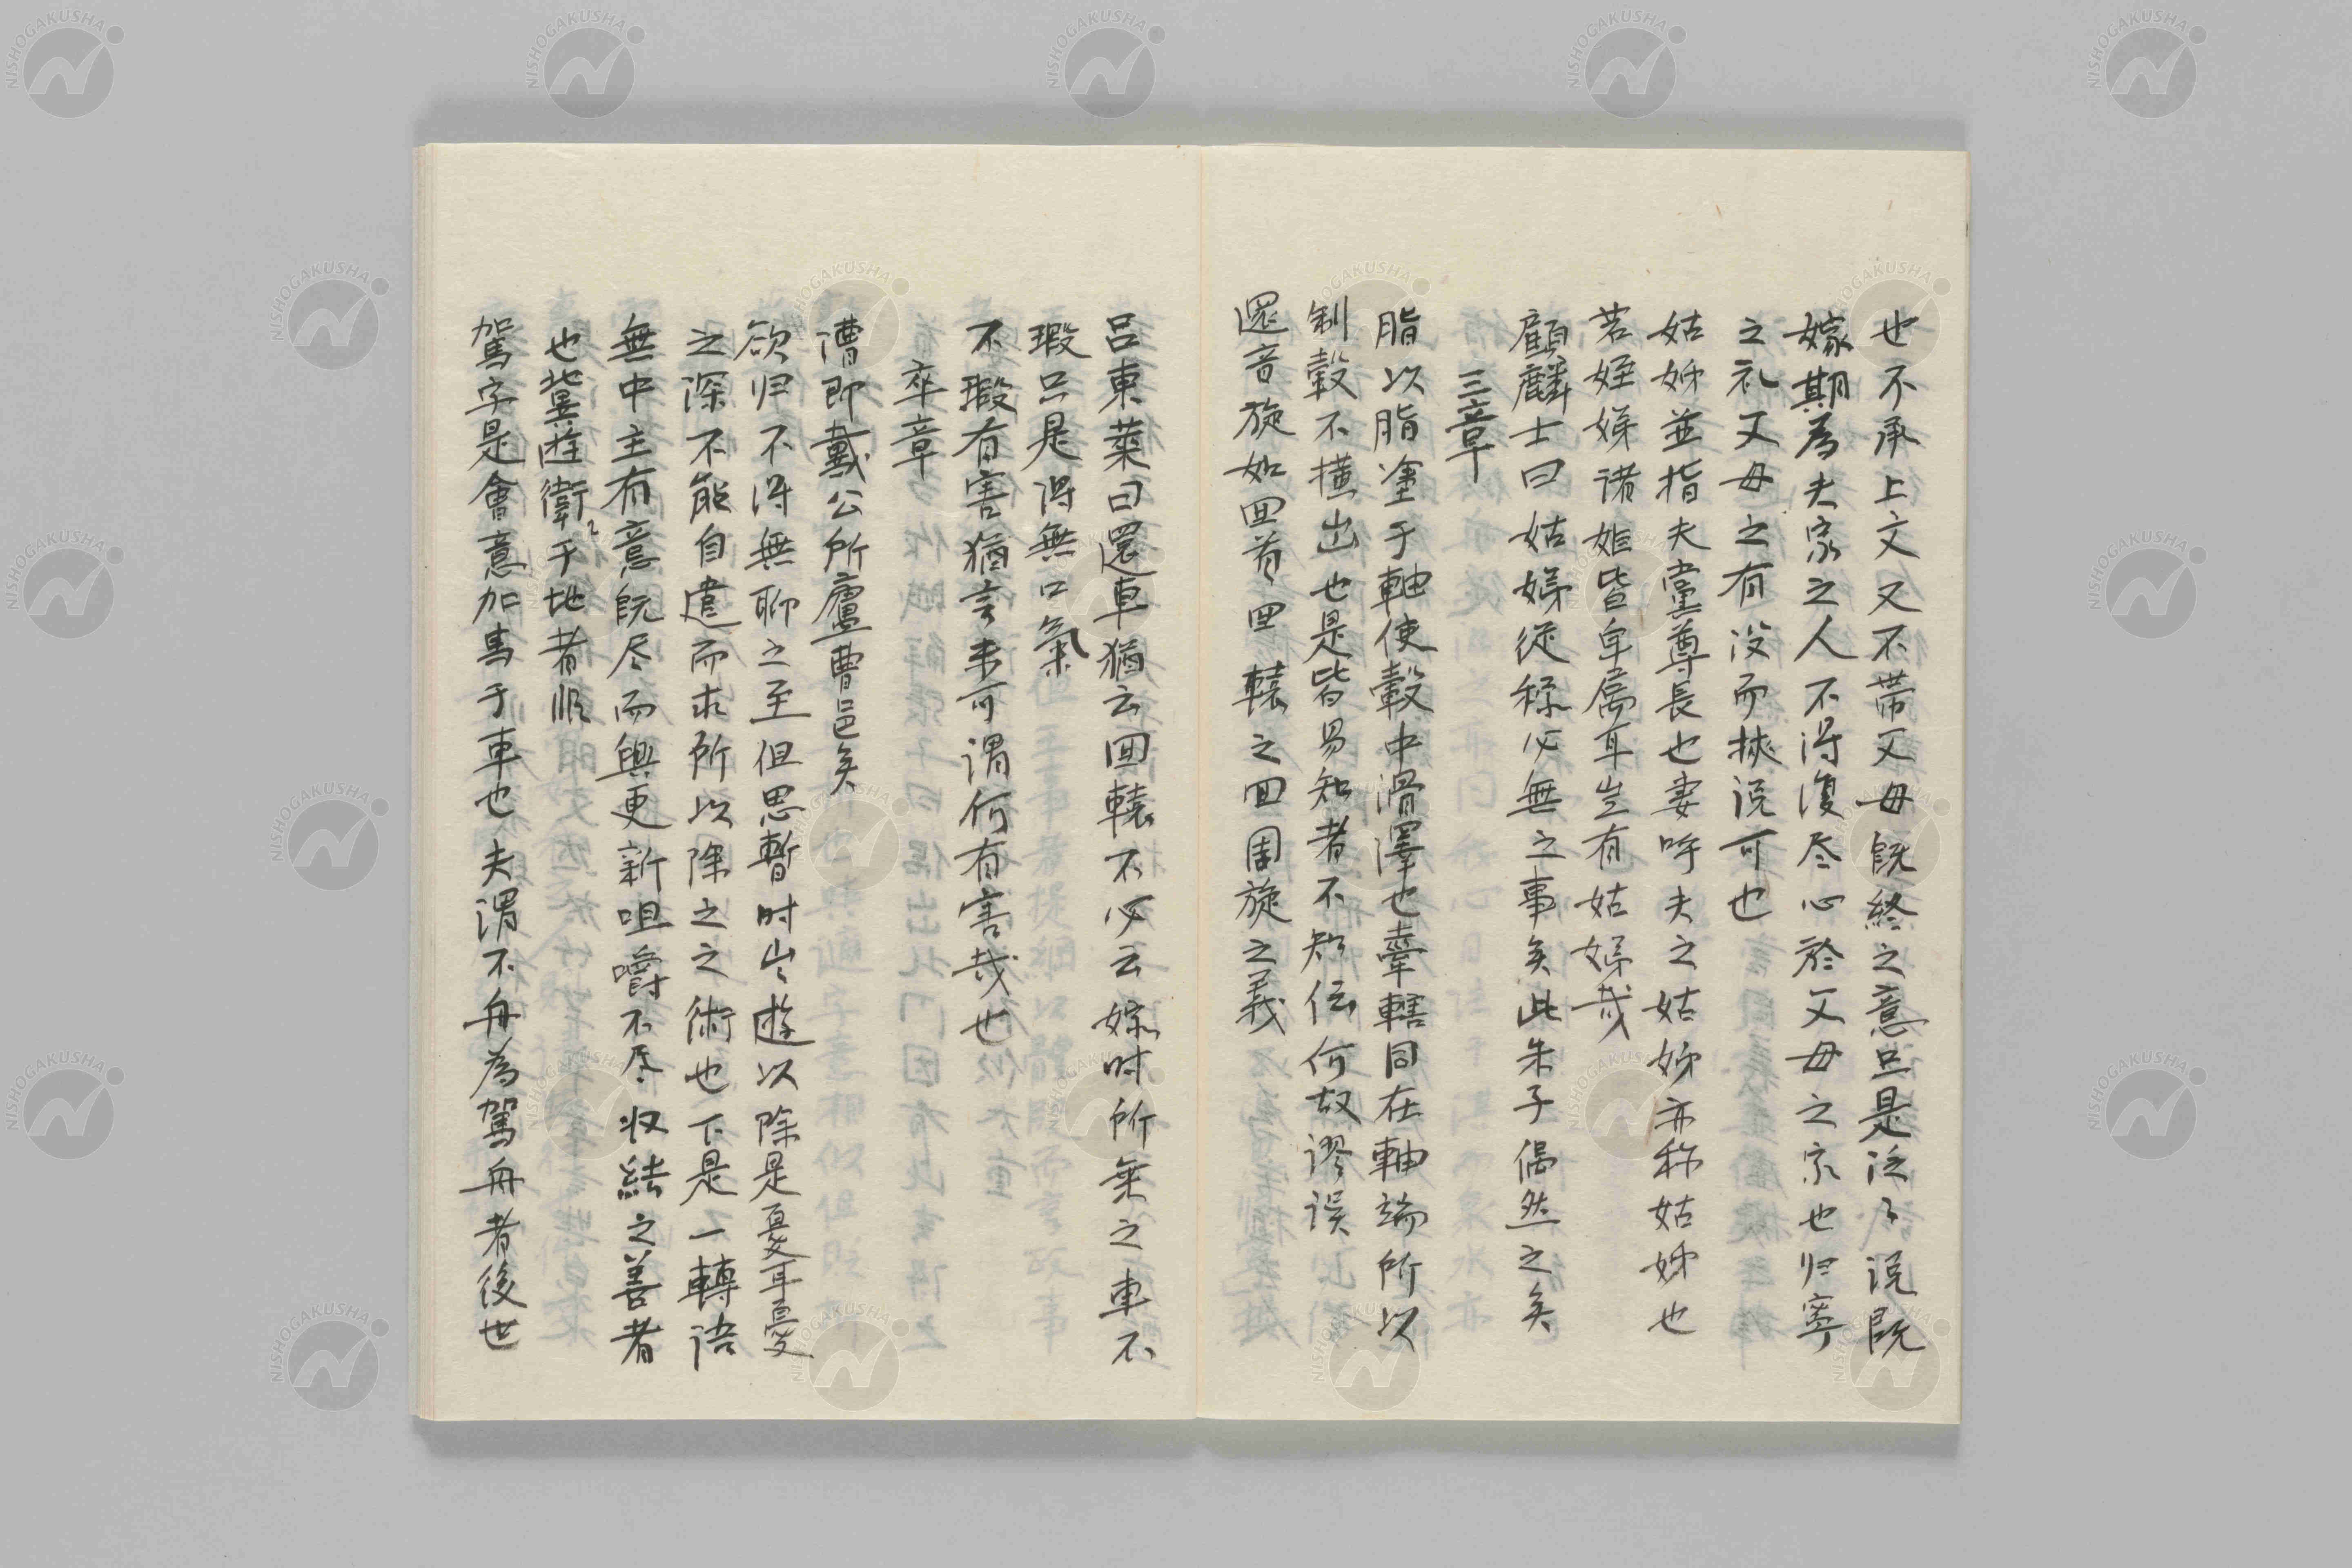 也不承上文又不帯父母既終之意只是泛々説既
嫁期為夫家之人不得復尽心於父母之家也归寧
之礼父母之有没而挾説可也
姑姊並指夫黨尊長也妻呼夫之姑姊亦称姑姊也
若姪娣諸姫皆卑属耳豈有姑娣哉
顧麟士曰姑娣従称必無之事矣此朱子偶然之矣
三章
脂以脂塗于軸使轂中滑澤也舝轄同在軸端所以
制轂不横出也是皆易知者不知伝何故謬誤
還音旋如回首回轅之回周旋之義
呂東萊曰還車猶云回轅不必云嫁时所乗之車不
瑕只是得無口氣
不瑕有害猶言未可謂何有害哉也
卒章
漕即戴公所廬曹邑矣
欲归不得無聊之至但思暫时出遊以除是憂耳憂
之深不能自遣而求所以除之之術也下是一轉語
無中主有意既尽而興更新咀嚼不尽収結之善者
也冀遊衛々于地者順
駕字是會意加馬于車也夫謂不舟為駕舟者後世